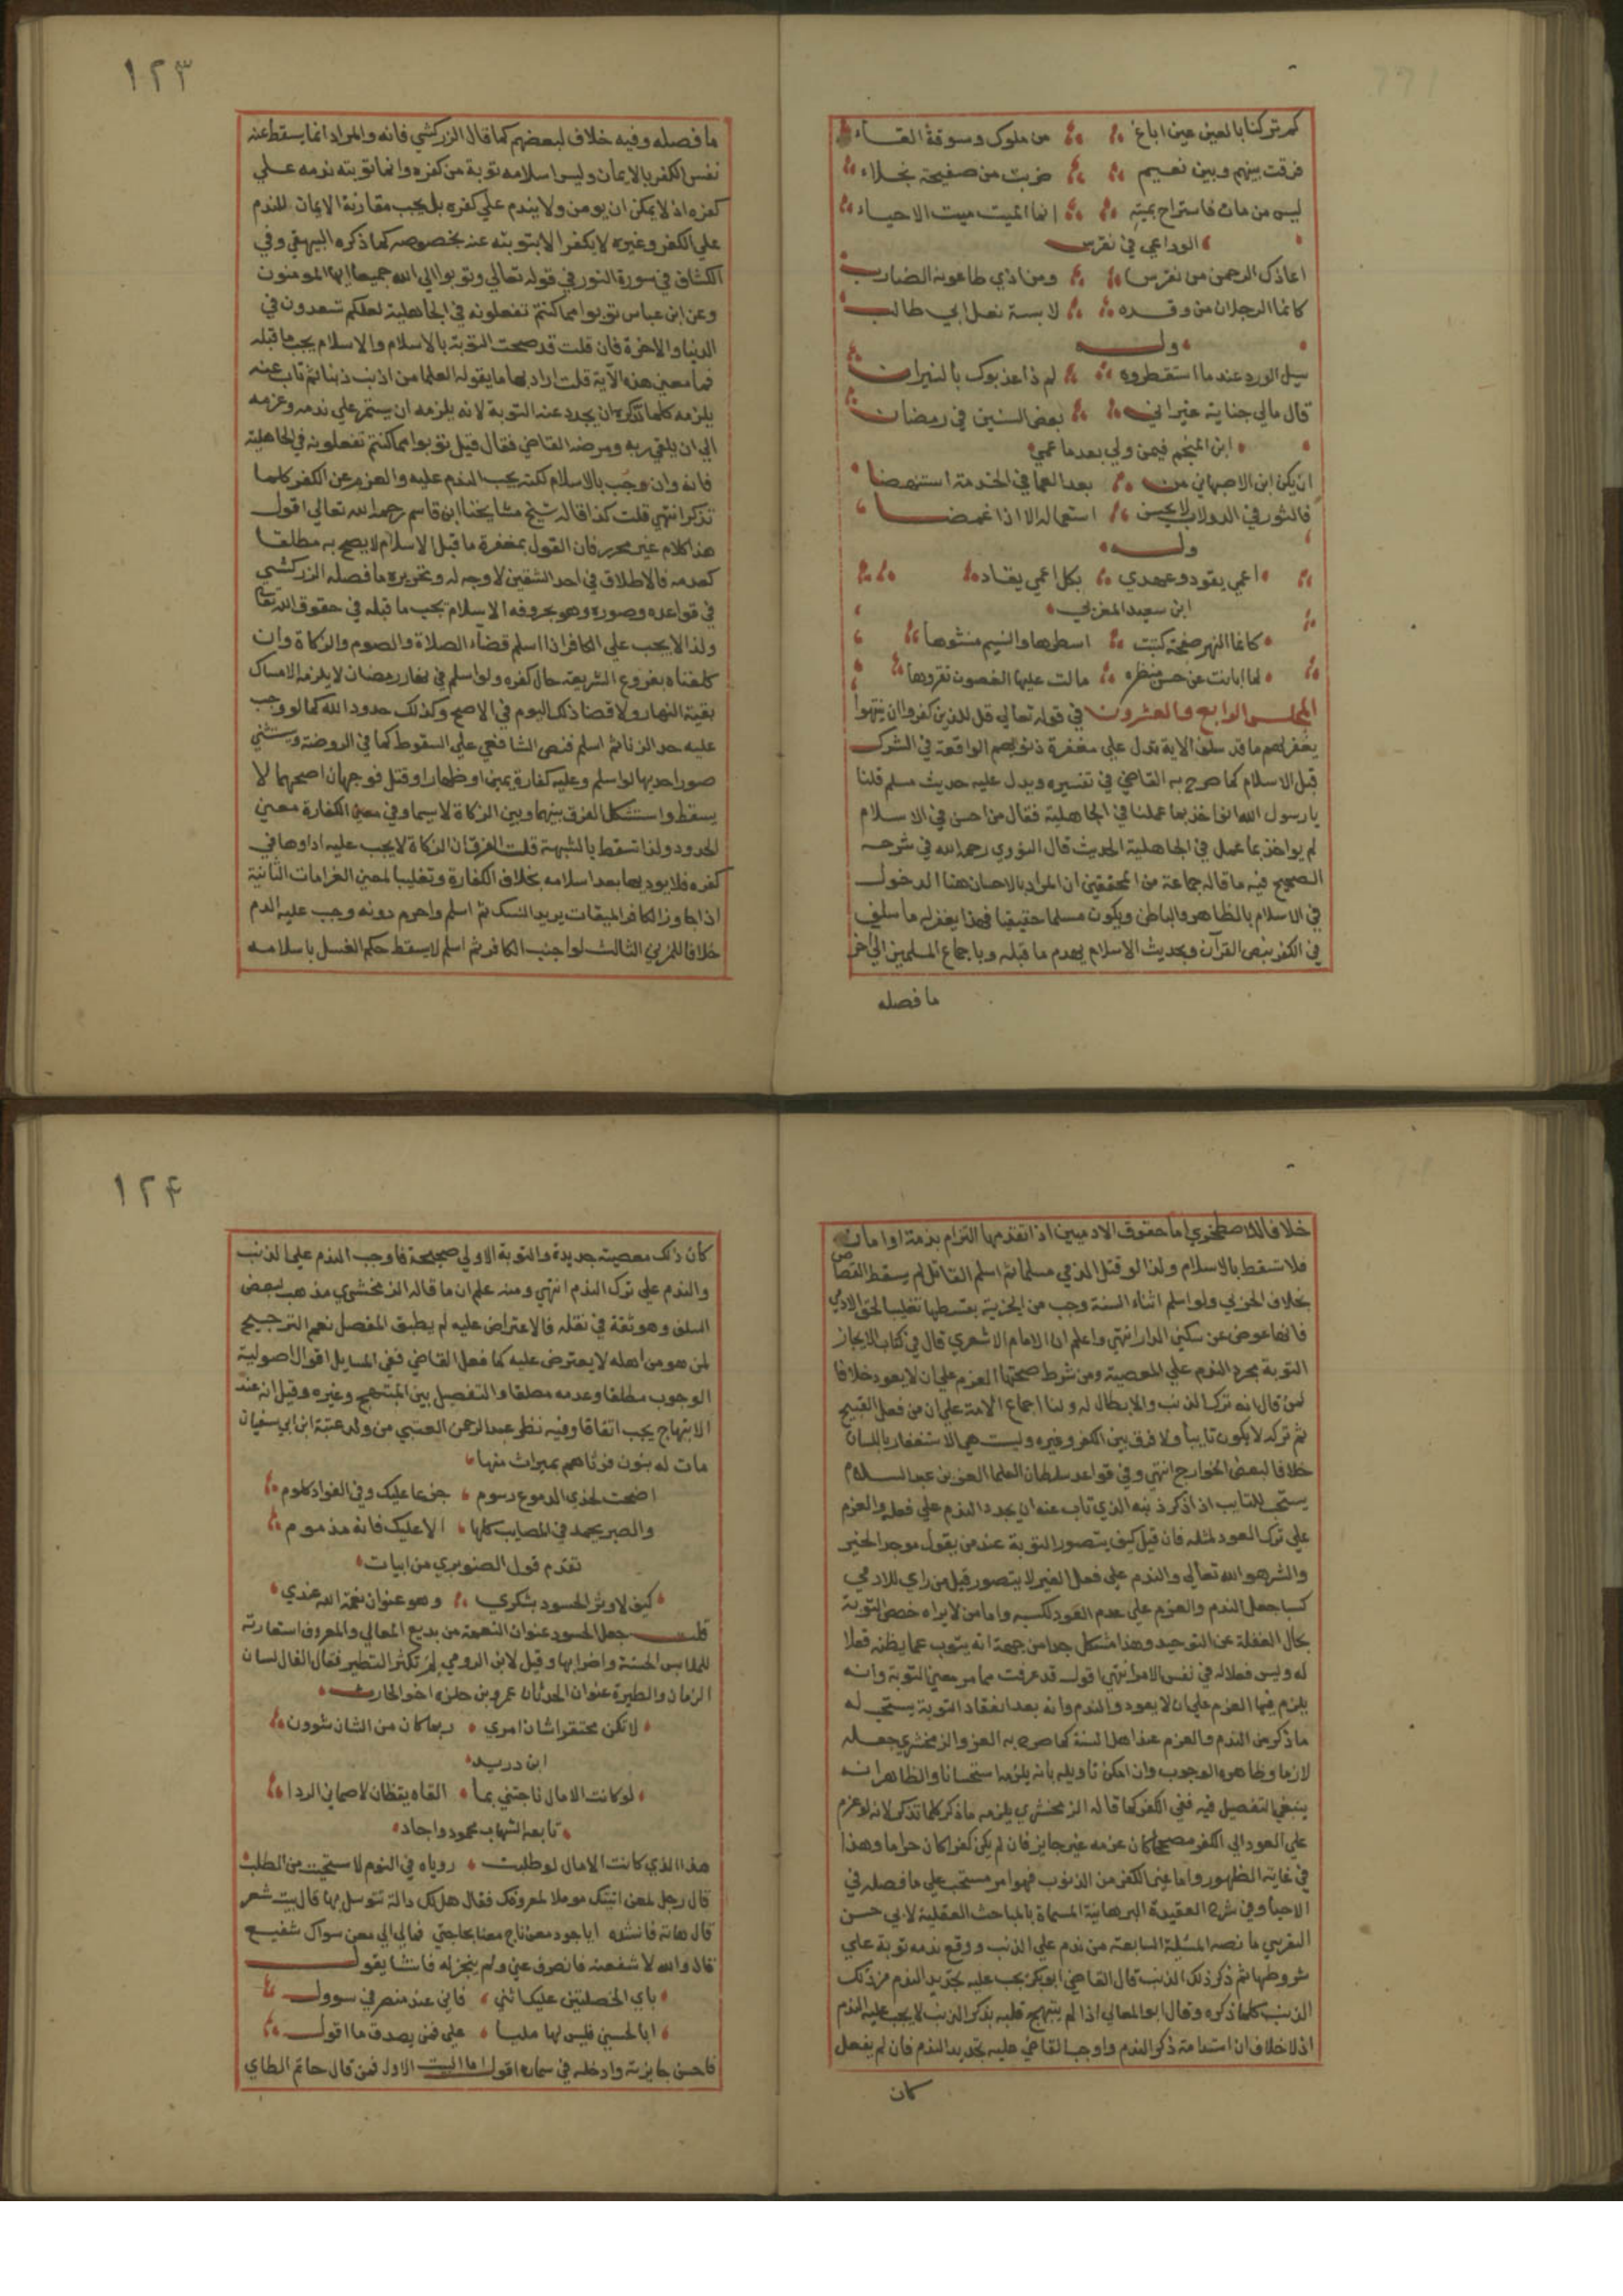 كم تركنا بالعين عين اباغ من ملوك وسوقة القاء
فرقت بينهم وبين نعيم ضربت من صفيحة نجلاء
ليس من مات فاستراح بميت انما الميت ميت الاحياء
الوداعي في نقرس
اعاذك الرحمن من نقرس ومن اذي طاعونه الضارب
كانما الرجلان من وقده لابسة نعل ابي طالب
وله
سيل الورد عند ما استقطروه لم ذا عذبوك بالنيران
قال مالي جناية غير اني بعض السنين في رمضان
ابن المنجم فيمن ولي بعد ما عمي
ان يكن ابن الاصبهاني من بعد العما في الخدمة استنهضا
فالثور في الدولاب لا يحسن استعماله الا اذا غمضا
وله
اعمي يقود وعهدي بكل اعمي يقاد
ابن سعيد المغربي
كانما النهر صفحة كتبت اسطرها والنسيم منشوها
لما ابانت عن حسن منظره مالت عليها الغصون تقروها
المجلس الرابع والعشرون في قوله تعالي قل للذين كفروا ان ينتهوا
يغفر لهم ما قد سلف الاية تدل علي مغفرة ذنوبهم الواقعة في الشرك
قبل الاسلام كما صرح به القاضي في تفسيره ويدل عليه حديث مسلم قلنا
يا رسول الله انؤاخذ بما عملنا في الجاهلية فقال من احسن في الاسلام
لم يواخذ بما عمل في الجاهلية الحديث قال النووي رحمه الله في شرحه
الصحيح فيه ما قاله جماعة من المحققين ان المراد بالاحسان هنا الدخول
في الاسلام بالظاهر والباطن ويكون مسلما حقيقيا فهذا يغفر له ما سلف
في الكفر بنص القرآن وبحديث الاسلام يهدم ما قبله وباجماع المسلمين الي اخر
ما فصله
١٢٣
ما فصله وفيه خلاف لبعضهم كما قال الزركشي فانه والمراد انما يسقط عنه
نفس الكفر بالايمان وليس اسلامه توبة من كفره وانما توبته ندمه علي
كفره اذ لا يمكن ان يومن ولا يندم علي كفره بل يجب مقارنة الايمان للندم
علي الكفر وغيره لا يكفر الا بتوبته عنه بخصوصه كما ذكره البيهقي وفي
الكشاف في سورة النور في قوله تعالي وتوبوا الي الله جميعا ايها المومنون
وعن ابن عباس توبوا مما كنتم تفعلونه في الجاهلية لعلكم تسعدون في
الدنيا والاخرة فان قلت قد صحت التوبة بالاسلام والاسلام يجب ما قبله
فما معني هذه الآية قلت اراد بها ما يقوله العلما من اذنب ذنبا ثم تاب عنه
يلزمه كلما تذكره ان يجدد عنه التوبة لانه يلزمه ان يستمر علي ندمه وعزمه
الي ان يلقي ربه ومرضه القاضي فقال قيل توبوا مما كنتم تفعلونه في الجاهلية
فانه وان وجب بالاسلام لكنه يجب الندم عليه والعزم عن الكفر كلما
تذكر انتهي قلت كذا قاله شيخ مشايخنا ابن قاسم رحمه الله تعالي اقول
هذا كلام غير محرر فان القول بمغفرة ما قبل الاسلام لا يصح به مطلقا
كعدمه فالاطلاق في احد الشقين لا وجه له وتحريره ما فصله الزركشي
في قواعده وصوره وهو بحروفه الاسلام يجب ما قبله في حقوق الله تعالي
ولذا لا يجب علي الكافر اذا اسلم قضاء الصلاة والصوم والزكاة وان
كلفناه بفروع الشريعة حال كفره ولو اسلم في نهار رمضان لا يلزمه الامساك
بقية النهار ولا قضا ذلك اليوم في الاصح وكذلك حدود الله كما لو وجب
عليه حد الزنا ثم اسلم فنص الشافعي علي السقوط كما في الروضة ويستثني
صور احديها لو اسلم وعليه كفارة يمين او ظهار او قتل فوجهان اصحهما لا
يسقط واستشكل الفرق بينهما وبين الزكاة لا سيما وفي معني الكفارة معني
الحدود ولذا تسقط بالشبهة قلت الفرق ان الزكاة لا يجب عليه اداوها في
كفره فلا يوديها بعد اسلامه بخلاف الكفارة وتغليبا لمعني الغرامات الثانية
اذا جاوز الكافر الميقات يريد النسك ثم اسلم واحرم دونه وجب عليه الدم
خلافا للمزني الثالث لو اجنب الكافر ثم اسلم لا يسقط حكم الغسل باسلامه
خلافا للاصطخري اما حقوق الادميين اذا تقدمها التزام بذمة او امان
فلا تسقط بالاسلام ولذا لو قتل الذمي مسلما ثم اسلم القاتل لم يسقط القصاص
بخلاف الحربي ولو اسلم اثناء السنة وجب من الجزية بقسطها تغليبا لحق الادمي
فانها عوض عن سكني الدار انتهي واعلم ان الامام الاشعري قال في كتاب الايجاز
التوبة مجرد الندم علي المعصية ومن شرط صحتها العزم علي ان لا يعود خلافا
لمن قال انه ترك الذنب والابطال له ولنا اجماع الامة علي ان من فعل القبيح
ثم تركه لا يكون تايبا ولا فرق بين الكفر وغيره وليست هي الاستغفار باللسان
خلافا لبعض الخوارج انتهي وفي قواعد سلطان العلما العز بن عبد السلام
يستحب للتايب اذا ذكر ذنبه الذي تاب عنه ان يجدد الندم علي فعله والعزم
علي ترك العود لمثله فان قيل كيف يتصور التوبة عند من يقول موجد الخير
والشر هو الله تعالي والندم علي فعل الغير لا يتصور قيل من راي للادمي
كسبا جعل الندم والعزم علي عدم العود لكسبه واما من لا يراه خصص التوبة
بحال الغفلة عن التوحيد وهذا مشكل جدا من جهة انه يتوب عما يظنه فعلا
له وليس فعلا له في نفس الامر انتهي اقول قد عرفت مما مر معني التوبة وانه
يلزم فيها العزم علي ان لا يعود والندم وانه بعد انعقاد التوبة يستحب له
ما ذكر من الندم والعزم عند اهل السنة كما صرح به العز والزمخشري جعله
لازما وظاهره الوجوب وان امكن تاويله بانه يلزمه استحسانا والظاهر انه
ينبغي التفصيل فيه ففي الكفر كما قاله الزمخشري يلزمه ما ذكر كلما تذكر لانه لو عزم
علي العود الي الكفر مصمما كان عزمه غير جايز فان لم يكن كفرا كان حراما وهذا
في غاية الظهور واما غير الكفر من الذنوب فهو امر مستحب علي ما فصله في
الاحيا وفي شرح العقيدة البرهانية المسماة بالمباحث العقلية لابي حسن
اليفرني ما نصه المسئلة السابعة من ندم علي الذنب ووقع ندمه توبة علي
شروطها ثم ذكر ذلك الذنب قال القاضي ابو بكر يجب عليه تجديد الندم من ذلك
الذنب كلما ذكره وقال ابو المعالي اذا لم يبتهج قلبه بذكر الذنب لا يجب عليه الندم
اذ لا خلاف ان استدامة ذكر الندم واوجب القاضي عليه تجديد الندم فان لم يفعل
كان
١٢٤
كان ذلك معصية جديدة والتوبة الاولي صحيحة فاوجب الندم علي الذنب
والندم علي ترك الندم انتهي ومنه علم ان ما قاله الزمخشري مذهب لبعض
السلف وهو ثقة في نقله فالاعتراض عليه لم يطبق المفصل نعم الترجيح
لمن هو من اهله لا يعترض عليه كما فعل القاضي ففي المسايل اقوال اصولية
الوجوب مطلقا وعدمه مطلقا والتفصيل بين المبتهج وغيره وقيل انه عند
الابتهاج يجب اتفاقا وفيه نظر عبد الرحمن العتبي من ولد عتبة ابن ابي سفيان
مات له بنون فرثاهم بمراث منها
اضحت لخدي الدموع رسوم جزعا عليك وفي الفواد كلوم
والصبر يحمد في المصايب كلها الا عليك فانه مذموم
تقدم قول الصنوبري من ابيات
كيف لا وثر الحسود بشكري وهو عنوان نعمة الله عندي
قلت جعل الحسود عنوان النعمة من بديع المعاني والمعروف استعارته
للملابس الحسنة واضرابها وقيل لابن الرومي لم تكثر التطير فقال الفال لسان
الزمان والطيرة عنوان الحدثان عمرو بن حلزه اخو الحارث
لا تكن محتقرا شان امري ربما كان من الشان شوون
ابن دريد
لو كانت الاحلام ناجتني بما القاه يقظان لاصماني الردا
تابعه الشهاب محمود واجاد
هذا الذي كانت الامال لو طلبت روياه في النوم لاستحيت من الطلب
قال رجل لمعن اتيتك موملا لمعروفك فقال هل لك دالة تتوسل بها قال بيت شعر
قال هاته فانشده ايا جود معن ناج معنا بحاجتي فما لي الي معن سواك شفيع
قال والله لاشفعنه فانصرف عني ولم ينجز له فانشا يقول
باي الخصلتين عليك اثني فاني عند منصرفي سوول
ابا لحسني فليس لها مليا علي فمن يصدق ما اقول
فاحسن جايزته وادخله في سماره اقول اما البيت الاول فمن قال حاتم الطاي